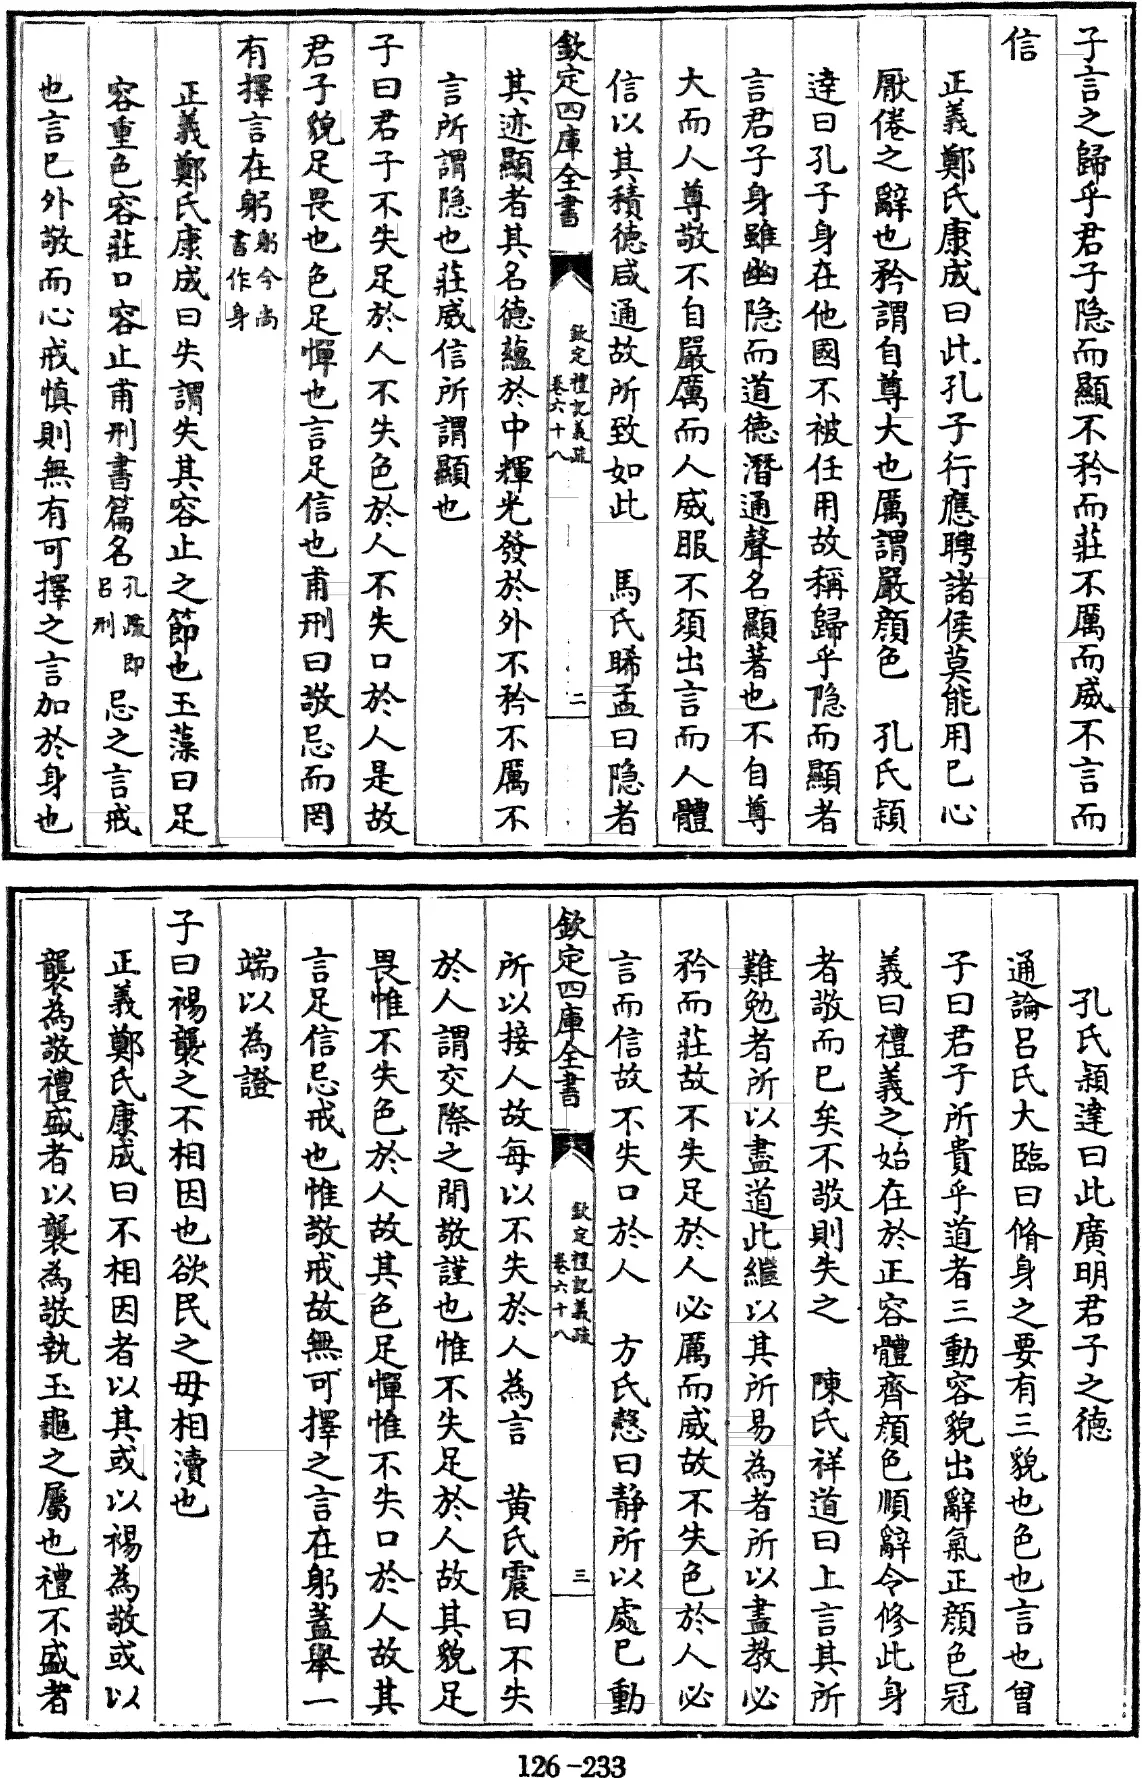 子言之歸乎君子隐而顯不矜而莊不厲而威不言而
信
正義鄭氏康成曰此孔子行應聘諸侯莫能用已心
厭倦之辭也矜謂自尊大也厲謂嚴顔色　孔氏穎
逹曰孔子身在他國不被任用故稱歸乎隐而顯者
言君子身雖幽隐而道德潛通聲名顯著也不自尊
大而人尊敬不自嚴厲而人威服不須出言而人體
信以其積德咸通故所致如此　馬氏睎孟曰隐者
欽定四庫全書
欽定禮記義疏
卷六十八
二
其迹顯者其名德藴於中輝光發於外不矜不厲不
言所謂隐也莊威信所謂顯也
子曰君子不失足於人不失色於人不失口於人是故
君子貌足畏也色足憚也言足信也甫刑曰敬忌而罔
有擇言在躬躬今尚書作身
正義鄭氏康成曰失謂失其容止之節也玉藻曰足
容重色容莊口容止甫刑書篇名孔疏即吕刑忌之言戒
也言已外敬而心戒慎則無有可擇之言加於身也
孔氏穎達曰此廣明君子之德
通論吕氏大臨曰脩身之要有三貌也色也言也曾
子曰君子所貴乎道者三動容貌出辭氣正顔色冠
義曰禮義之始在於正容體齊顔色順辭令修此身
者敬而已矣不敬則失之　陳氏祥道曰上言其所
難勉者所以盡道此繼以其所易為者所以盡教必
矜而莊故不失足於人必厲而威故不失色於人必
言而信故不失口於人　方氏慤曰靜所以處已動
欽定四庫全書
欽定禮記義疏
卷六十八
三
所以接人故每以不失於人為言　黄氏震曰不失
於人謂交際之間敬謹也惟不失足於人故其貌足
畏惟不失色於人故其色足憚惟不失口於人故其
言足信忌戒也惟敬戒故無可擇之言在躬蓋舉一
端以為證
子曰裼襲之不相因也欲民之毋相瀆也
正義鄭氏康成曰不相因者以其或以裼為敬或以
襲為敬禮盛者以襲為敬執玉龜之屬也禮不盛者
126-233